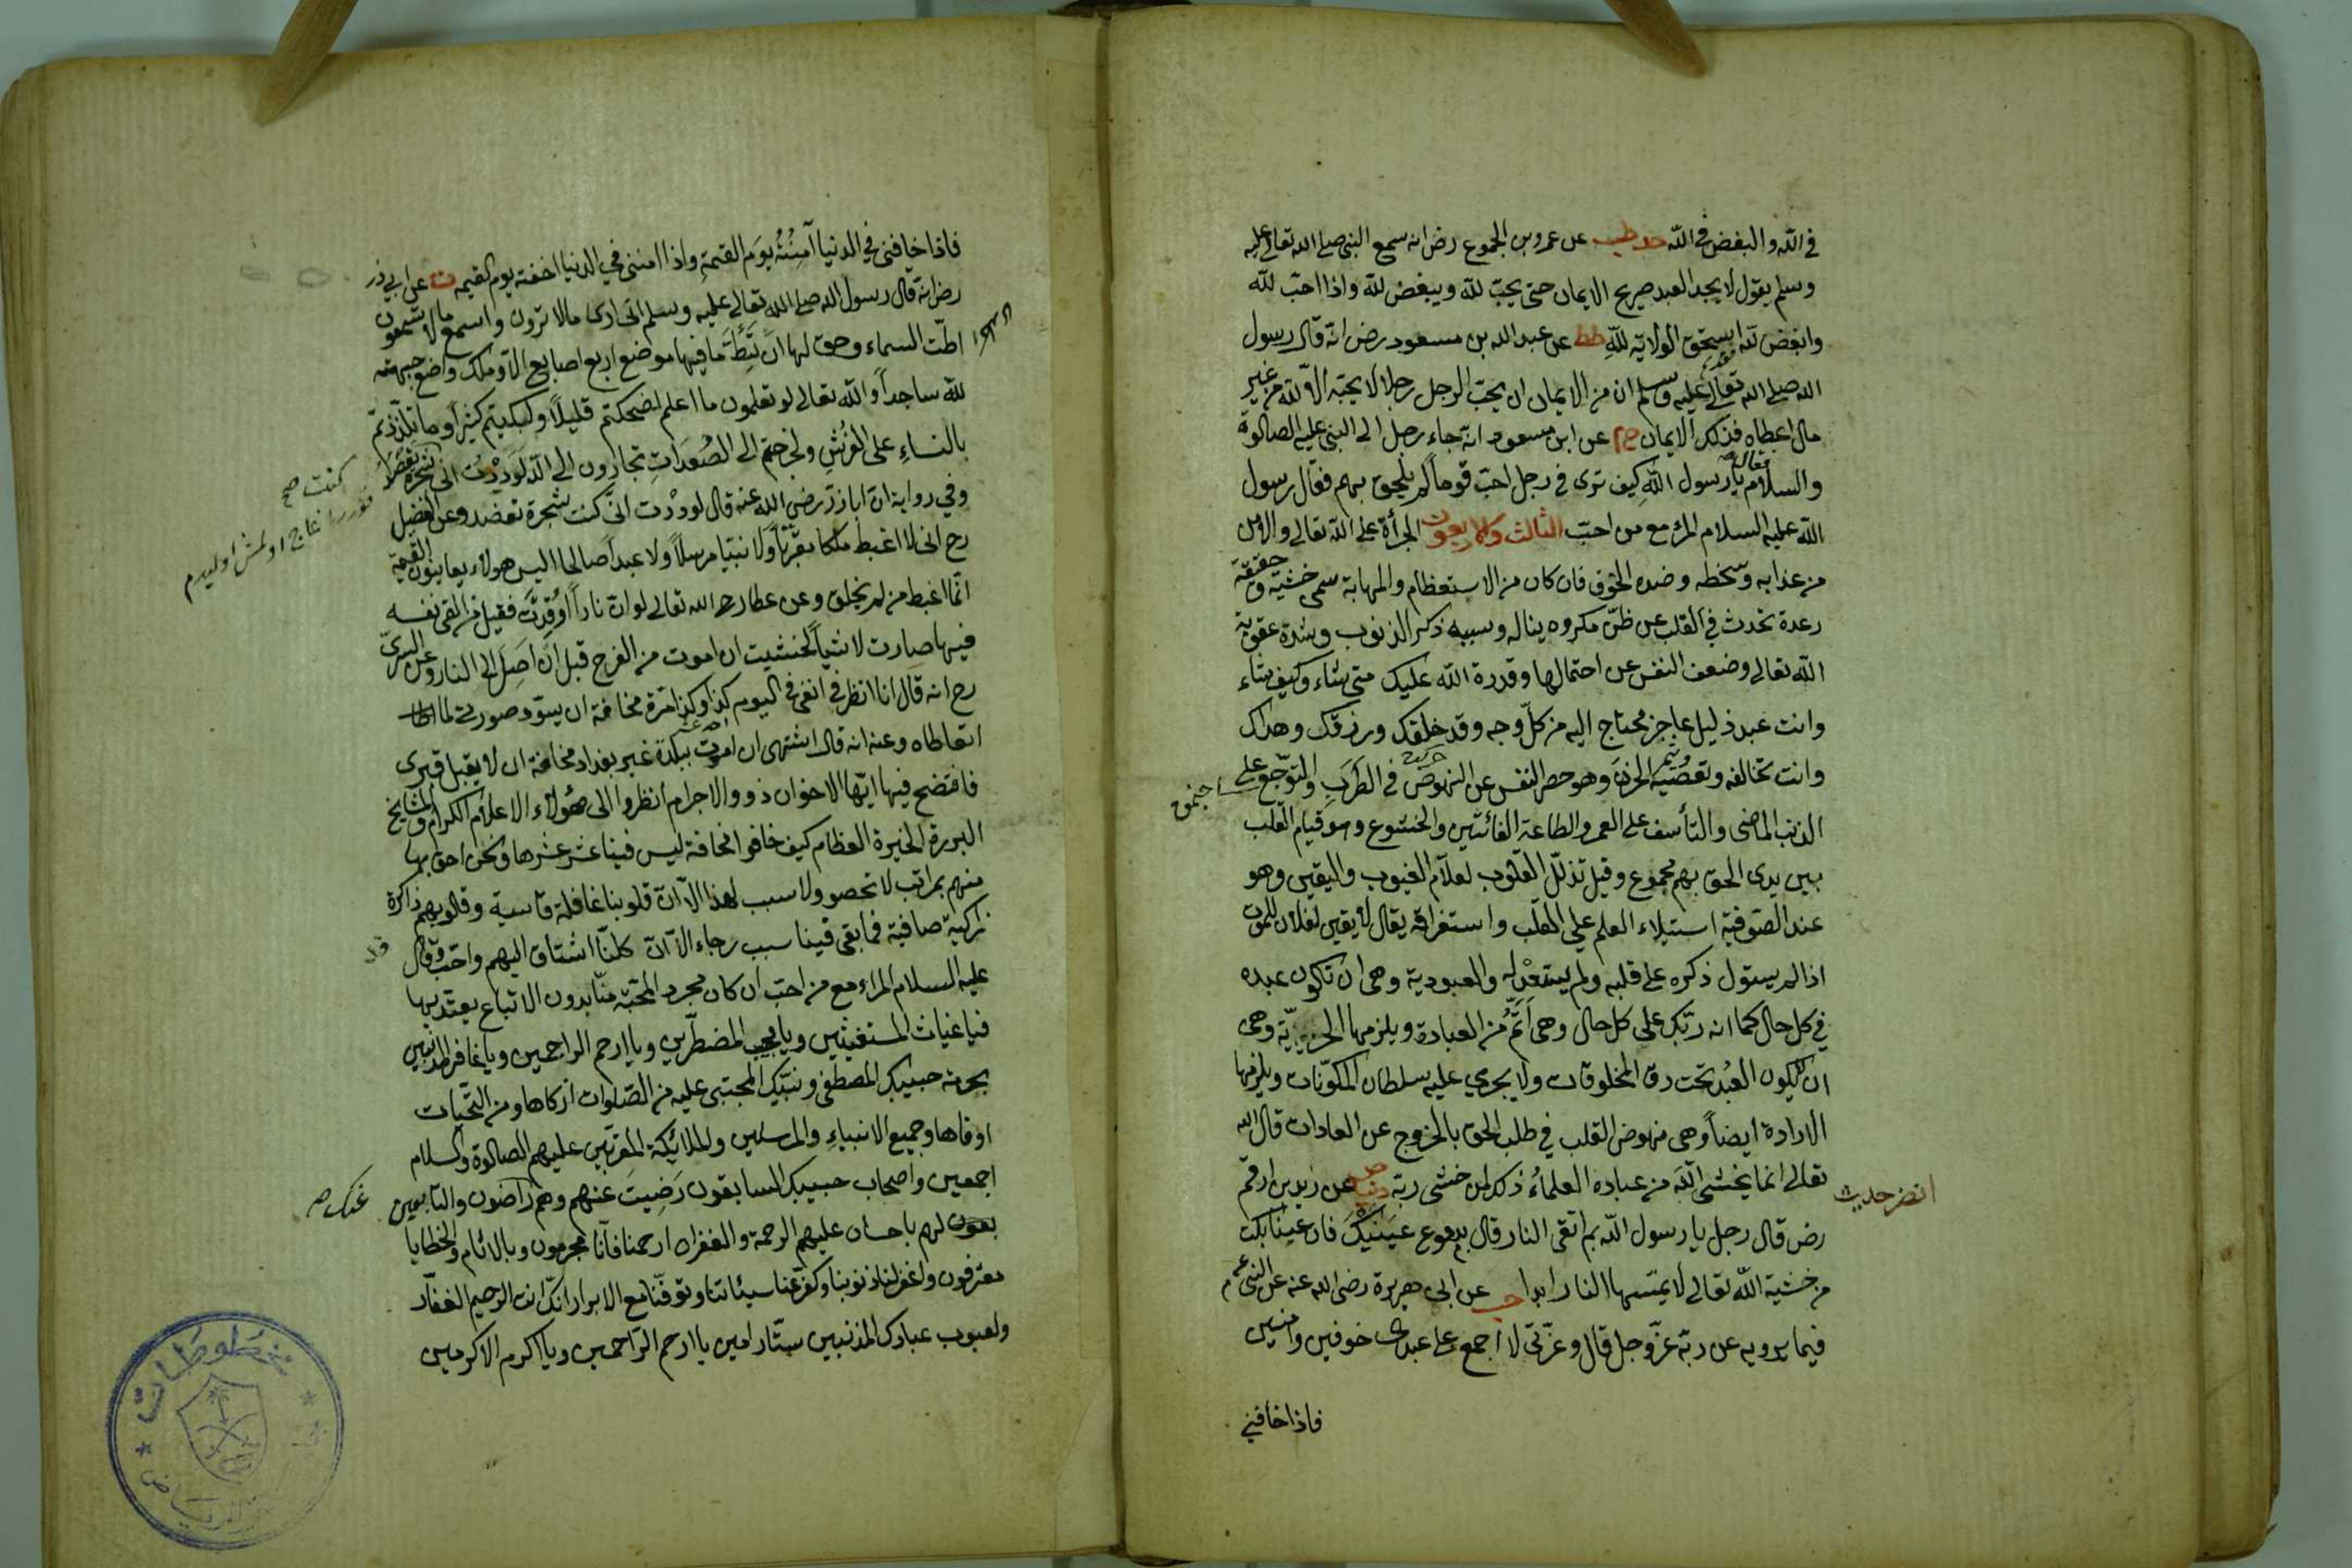 في الله والبغض في الله حد طب عن عمرو بن الجموع رض انه سمع النبي صلى الله تعالى عليه
وسلم يقول لا يجد العبد صريح الايمان حتى يحب لله ويبغض لله واذا احب لله
وابغض لله استحق الولاية لله طط عن عبد الله بن مسعود رض انه قال رسول
الله صلى الله تعالى عليه وسلم ان من الايمان ان يحب الرجل رجلا لا يحبه الا لله من غير
مال اعطاه فذلك الايمان خ م عن ابن مسعود انه جاء رجل الى النبي عليه الصلوة
والسلام فقال يا رسول الله كيف ترى في رجل احب قوما لم يلحق بهم فقال رسول
الله عليه السلام المرء مع من احب الثالث والاربعون الجرأة على الله تعالى والامن
من عذابه وسخطه وضده الخوف فان كان من الاستعظام والمهابة سمي خشية وحقيقته
رعدة تحدث في القلب عن ظن مكروه يناله وسببه ذكر الذنوب وشدة عقوبة
الله تعالى وضعف النفس عن احتمالها وقدرة الله عليك متى شاء وكيف شاء
وانت عبد ذليل عاجز محتاج اليه من كل وجه وقد خلقك ورزقك وهداك
وانت تخالفه وتعصيه وثم الحزن وهو حصر النفس عن النهوض في الطرب والتوجع على
الذنب الماضي والتأسف على العمر والطاعة الفائتين والخشوع وهو قيام القلب
بين يدي الحق بهم مجموع وقيل تذلل القلوب لعلام الغيوب واليقين وهو
عند الصوفية استيلاء العلم على القلب واستغراقه يقال لا يقين لفلان للموت
اذا لم يستول ذكره على قلبه ولم يستعد له والعبودية وهي ان تكون عبده
في كل حال كما انه ربك على كل حال وهي اتم من العبادة ويلزمها الحرية وهي
ان لا يكون العبد تحت رق المخلوقات ولا يجري عليه سلطان المكونات ويلزمها
الارادة ايضا وهي نهوض القلب في طلب الحق بالخروج عن العادات قال الله
تعالى انما يخشى الله من عباده العلماء ذلك لمن خشي ربه دنيا عن زيد بن ارقم
رض قال رجل يا رسول الله بم اتقي النار قال بدموع عينيك فان عينا بكت
من خشية الله تعالى لا يمسها النار ابدا حب عن ابي هريرة رضي الله عنه عن النبي عم
فيما يرويه عن ربه عز وجل قال وعزتي لا اجمع على عبدي خوفين وامنين
فاذا خافني
فاذا خافني في الدنيا آمنته يوم القيمة واذا امنني في الدنيا اخفته يوم القيمه ت عن ابي ذر
رض انه قال رسول الله صلى الله تعالى عليه وسلم اني ارى ما لا ترون واسمع ما لا تسمعون
اطت السماء وحق لها ان تئط ما فيها موضع اربع اصابع الا وملك واضع جبهته
لله ساجدا والله تعالى لو تعلمون ما اعلم لضحكتم قليلا ولبكيتم كثيرا وما تلذذتم
بالنساء على الفرش ولخرجتم الى الصعدات تجارون الى الله لوددت اني شجرة تعضد
وفي رواية ان اباذر رضي الله عنه قال لوددت اني كنت شجرة تعضد وعن الفضيل
رح اني لا اغبط ملكا مقربا ولا نبيا مرسلا ولا عبدا صالحا اليس هولاء يعاينون القيمة
انما اغبط من لم يخلق وعن عطا رحمه الله تعالى لو ان نارا اوقدت فقيل من القى نفسه
فيها صارت لا شيأ لخشيت ان اموت من الفرح قبل ان اصل الى النار وعن السري
رح انه قال انا انظر في انفي في اليوم كذا وكذا مرة مخافة ان يسود صورتي لما
اتعاطاه وعنه انه قال اشتهي ان اموت ببلدة غير بغداد مخافة ان لا يقبل قبري
فافتضح فيها ايها الاخوان ذوو الاجرام انظروا الى هؤلاء الاعلام الكرام والمشايخ
البررة الخيرة العظام كيف خافوا مخافة ليس فينا عشر عشرها ونحن احق بها
منهم بمراتب لا تحصر ولا سبب لهذا الا ان قلوبنا غافلة قاسية وقلوبهم ذاكرة
زكية صافية فما بقي فينا سبب رجاء الا ان كلنا اشتاق اليهم واحب وقال
عليه السلام المراء مع من احب ان كان مجرد المحبة منا بدون الاتباع يعتد بها
فيا غياث المستغيثين ويا مجيب المضطرين ويا ارحم الراحمين ويا غافر المذنبين
بحرمة حبيبك المصطفى ونبيك المجتبى عليه من الصلوات ازكاها ومن التحيات
اوفاها وجميع الانبياء والمرسلين والملائكة المقربين عليهم الصلوة والسلام
اجمعين واصحاب حبيبك السابقون رضيت عنهم وهم راضون والتابعين
لهم باحسان عليهم الرحمة والغفران ارحمنا فانا مجرمون وبالاثام والخطايا
معترفون واغفر لنا ذنوبنا وكفر عنا سيئاتنا وتوفنا مع الابرار انك انت الرحيم الغفار
ولعيوب عبادك المذنبين ستار امين يا ارحم الراحمين ويا اكرم الاكرمين
كنت صح
عنك صح
مخطوطات
الرياض